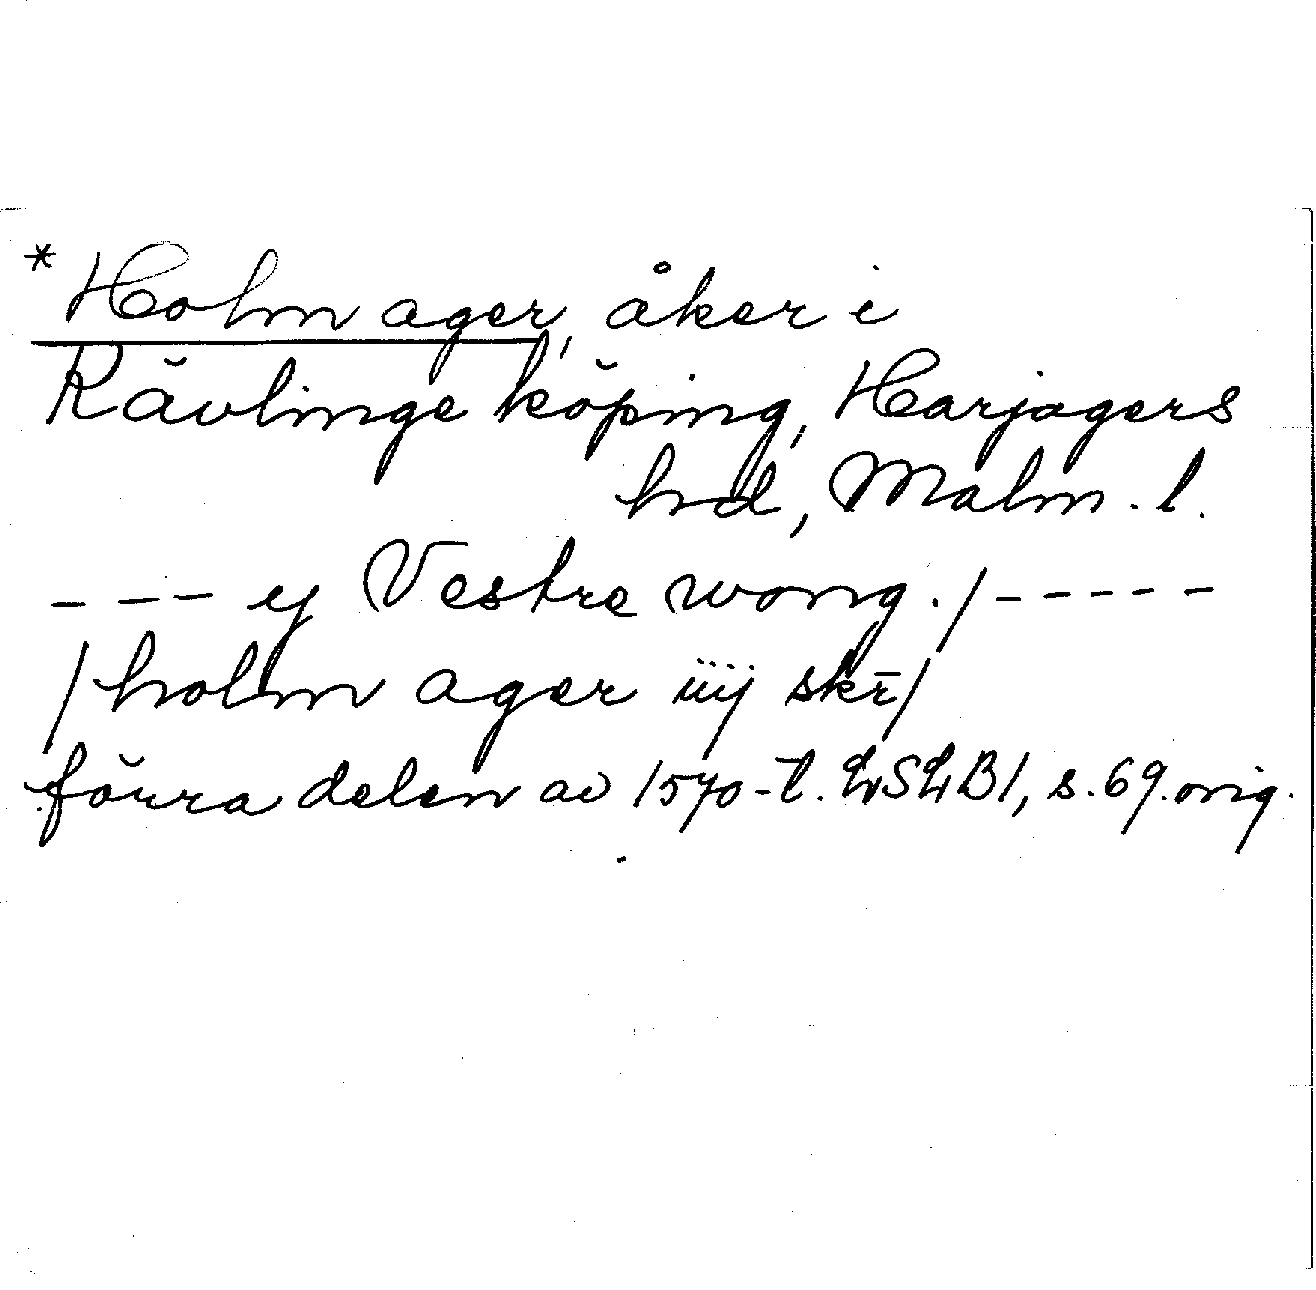 * Holm ager, åker i
Rävlinge köping, Harjagers
hd, Malm. l.
--- ej Vestre wong. /-----
/ holm ager iiij skr̄ /
förra delen av 1570-t. LSLB1, s. 69. orig.